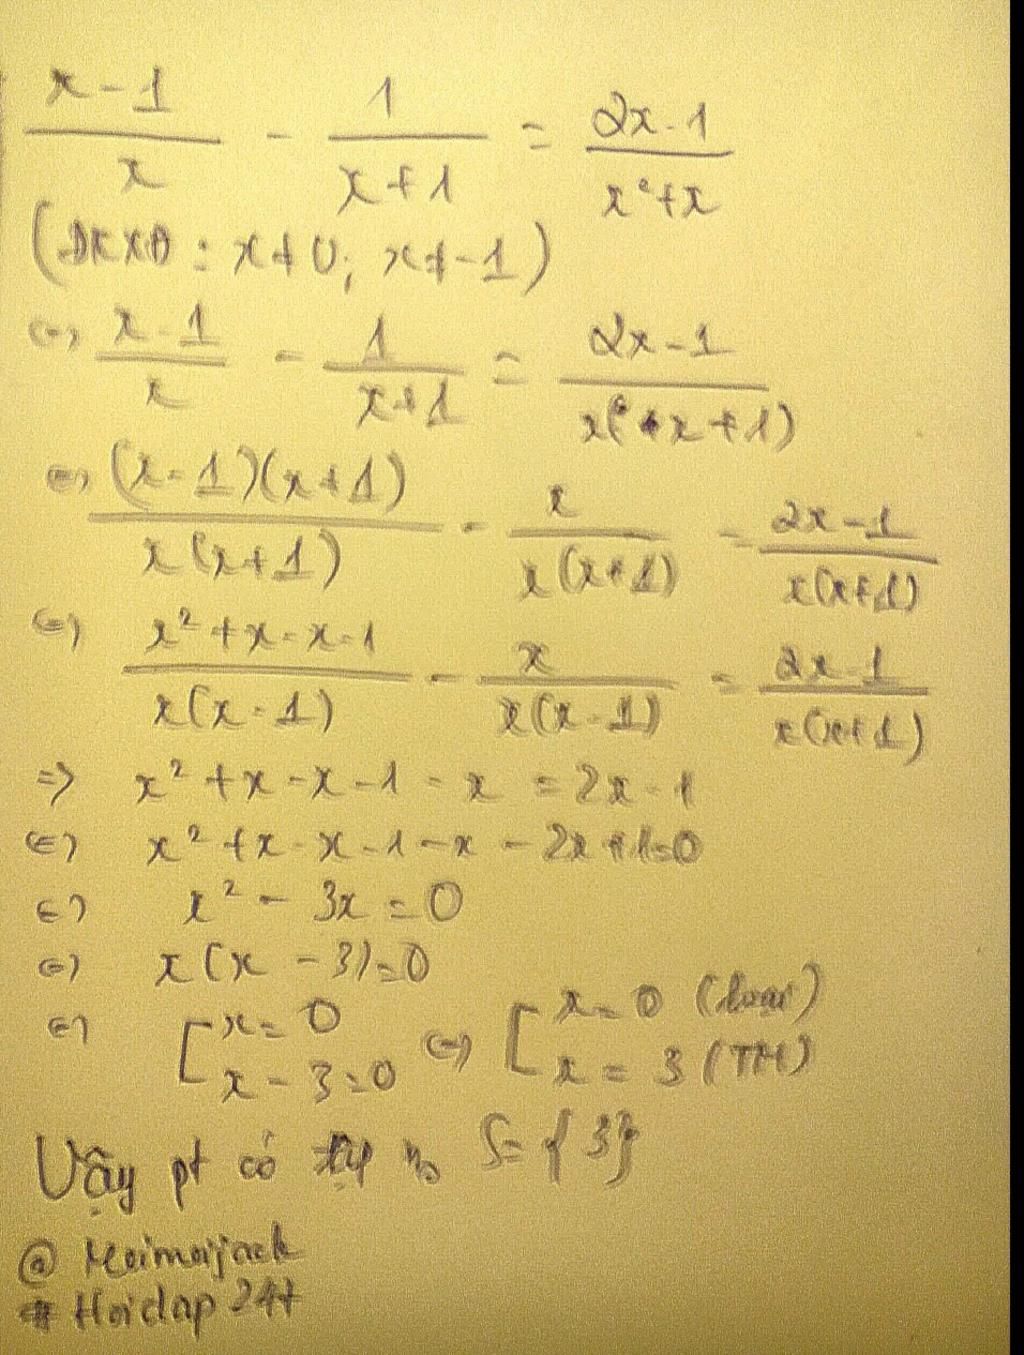 (x-1)/x - 1/(x+1) = (2x-1)/(x²+x)
(ĐKXĐ: x≠0; x≠-1)
<=> (x-1)/x - 1/(x+1) = (2x-1)/(x(x+1))
<=> ((x-1)(x+1))/(x(x+1)) - x/(x(x+1)) = (2x-1)/(x(x+1))
<=> (x²+x-x-1)/(x(x-1)) - x/(x(x-1)) = (2x-1)/(x(x+1))
=> x²+x-x-1-x = 2x-1
<=> x²+x-x-1-x-2x+1=0
<=> x²-3x=0
<=> x(x-3)=0
<=> [x=0; x-3=0 <=> [x=0 (loại); x=3 (TM)
Vậy pt có tập no S={3}
@ Meimeijack
# Hoidap 247